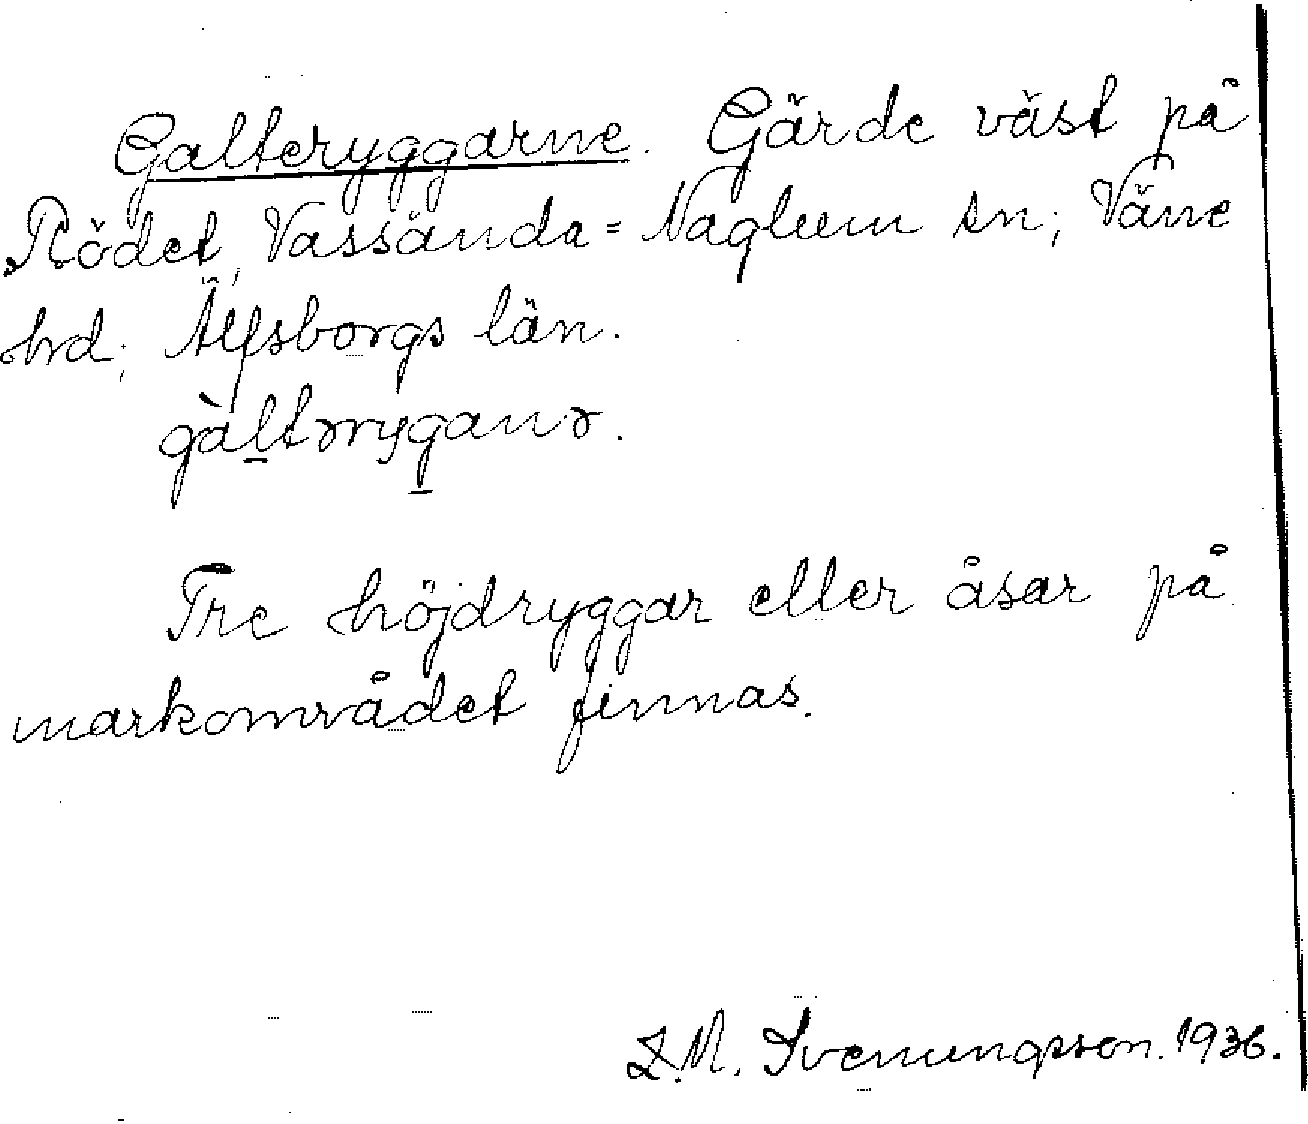 Galteryggarne. Gärde väst på
Rödet, Vassända=Naglum sn; Väne
hrd; Älfsborgs län.
gàltəryganə.
Tre höjdryggar eller åsar på
markområdet finnas.
Z.M. Svenungsson. 1936.